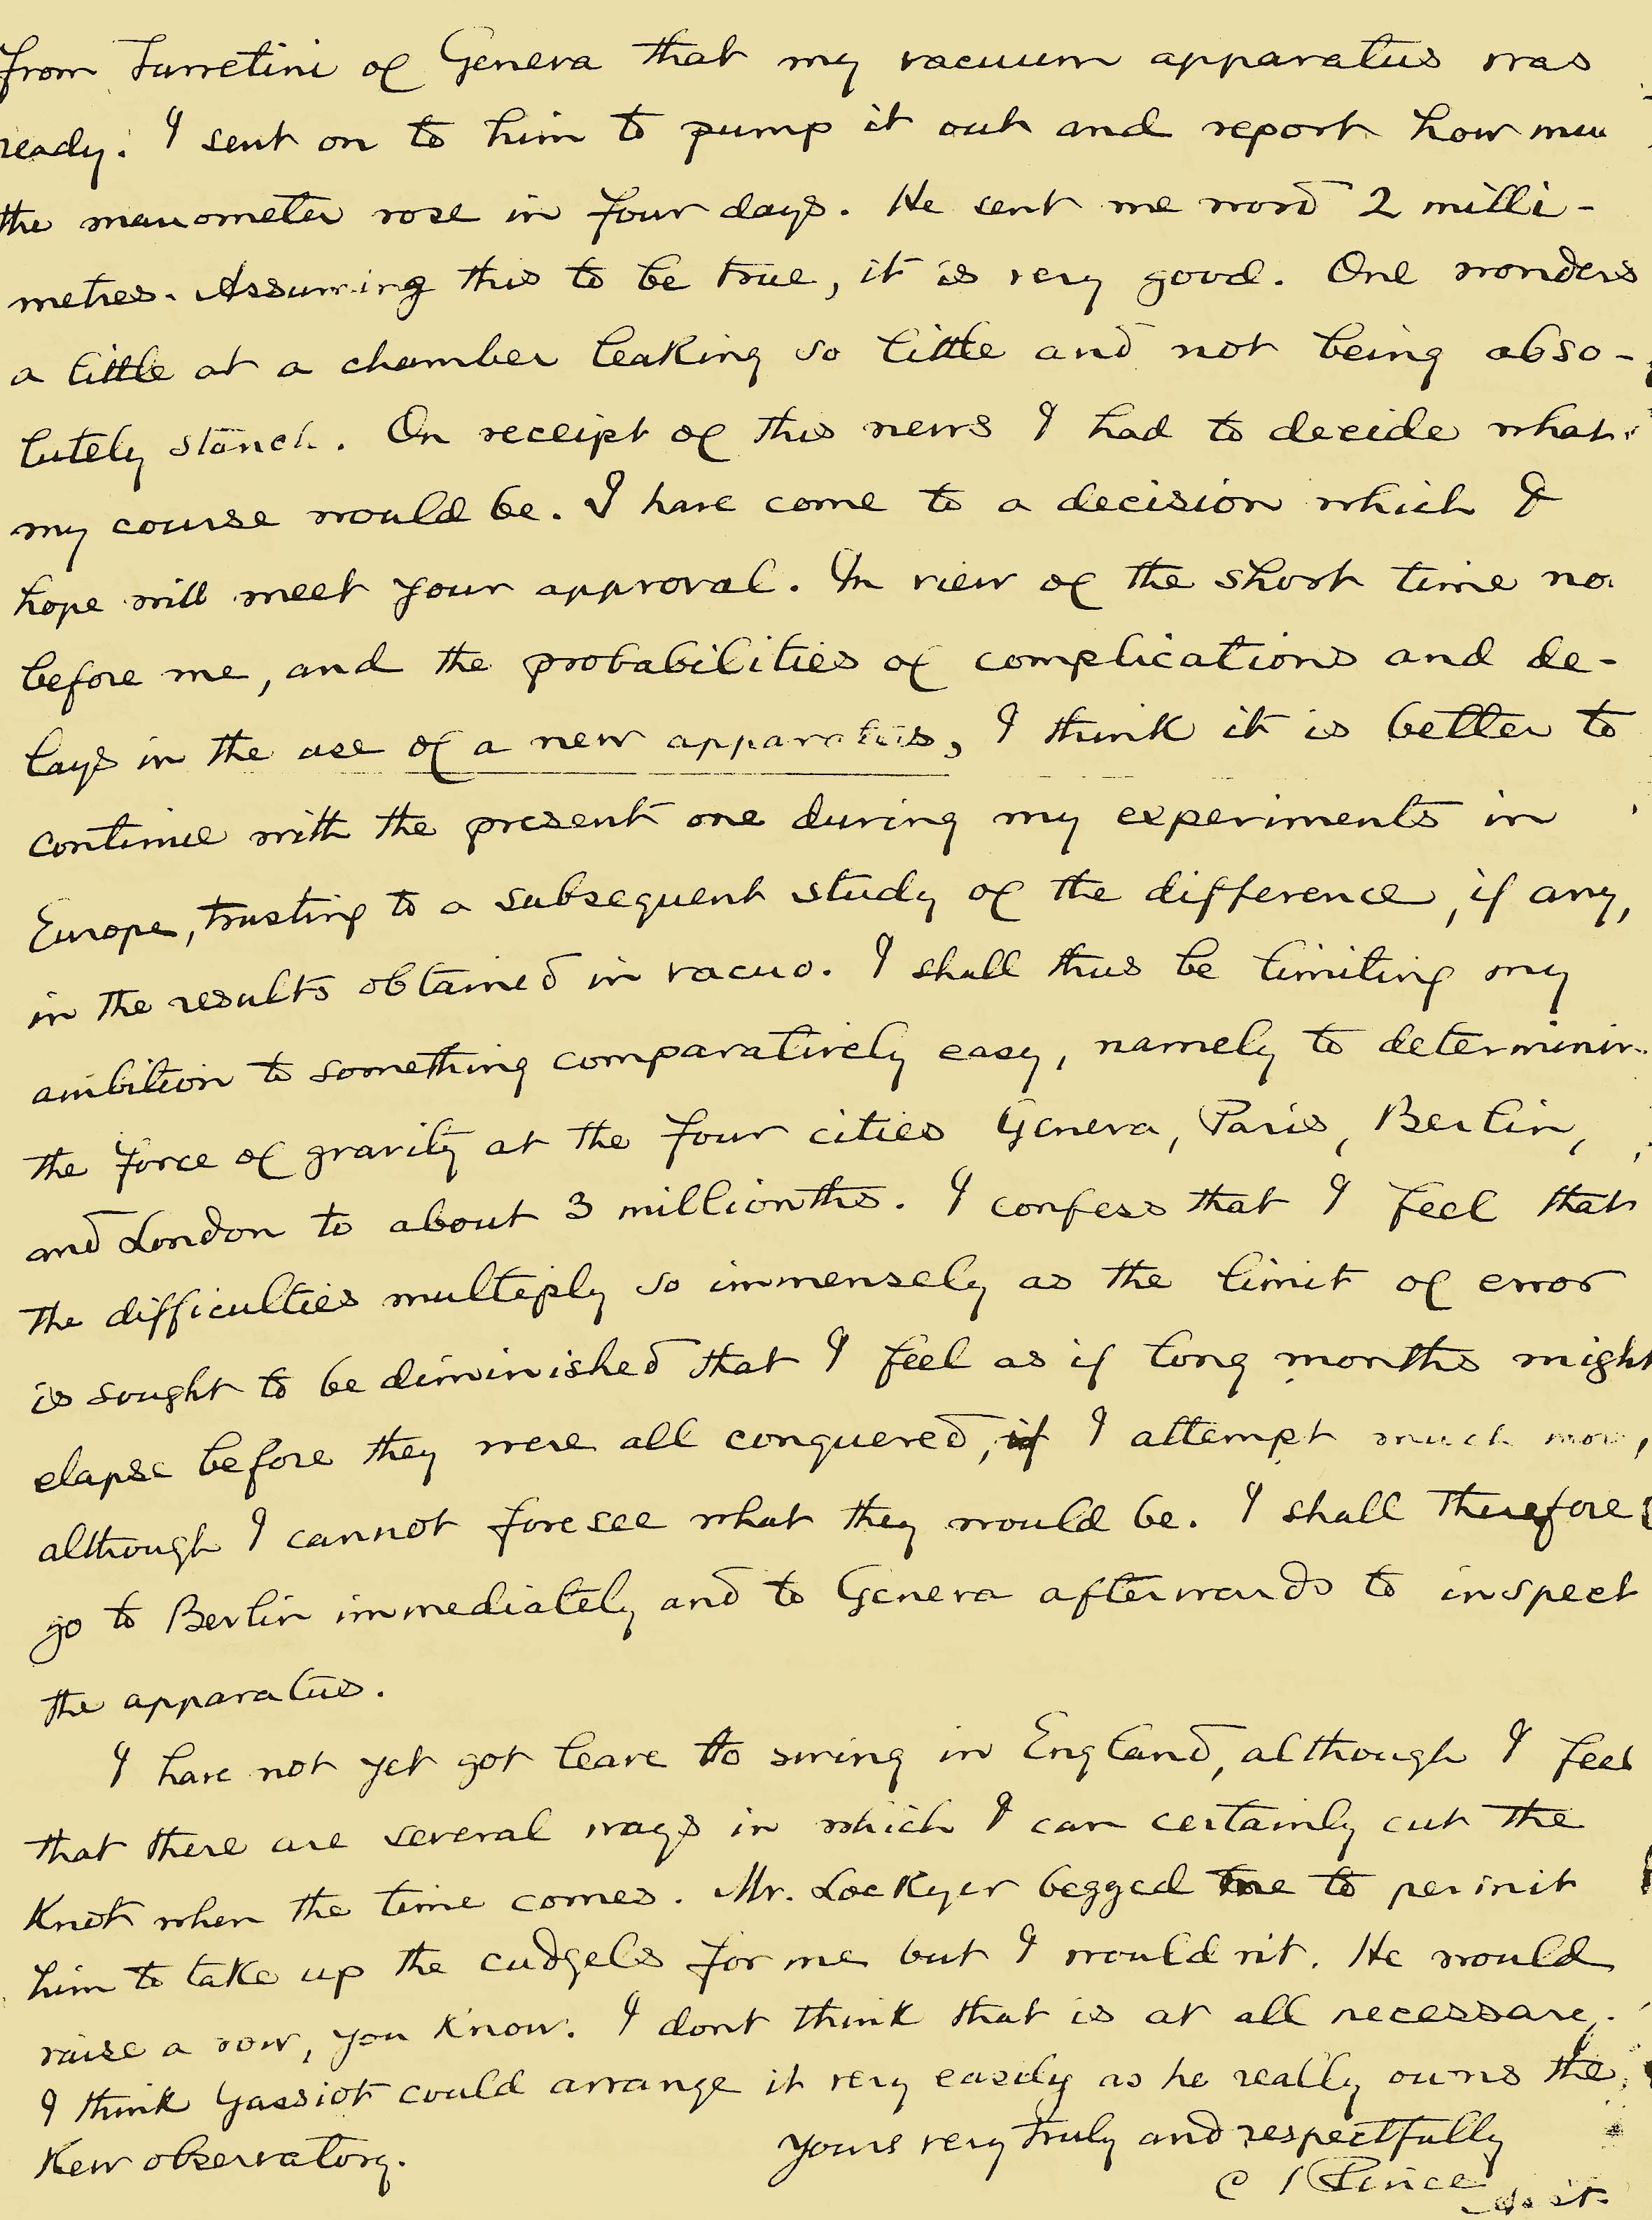 from Turretini of Geneva that my vacuum apparatus was
ready. I sent on to him to pump it out and report how mu
the manometer rose in four days. He sent me word 2 milli-
metres. Assuming this to be true, it is very good. One wonders
a little at a chamber leaking so little and not being abso-
lutely stanch. On receipt of this news I had to decide what
my course would be. I have come to a decision which I
hope will meet your approval. In view of the short time no
before me, and the probabilities of complications and de-
lays in the use of a new apparatus, I think it is better to
continue with the present one during my experiments in
Europe, trusting to a subsequent study of the difference, if any,
in the results obtained in vacuo. I shall thus be limiting my
ambition to something comparatively easy, namely to determinin
the force of gravity at the four cities Geneva, Paris, Berlin,
and London to about 3 millionths. I confess that I feel that
the difficulties multiply so immensely as the limit of error
is sought to be diminished that I feel as if long months might
elapse before they were all conquered, if I attempt much more,
although I cannot foresee what they would be. I shall therefore
go to Berlin immediately and to Geneva afterwards to inspect
the apparatus.
I have not yet got leave to swing in England, although I feel
that there are several ways in which I can certainly cut the
Knot when the time comes. Mr. Lockyer begged me to permit
him to take up the cudgels for me but I wouldn't. He would
raise a row, you know. I dont think that is at all necessary.
I think Gassiot could arrange it very easily as he really owns the
Kew observatory.
Yours very truly and respectfully
C S Peirce
Asst.